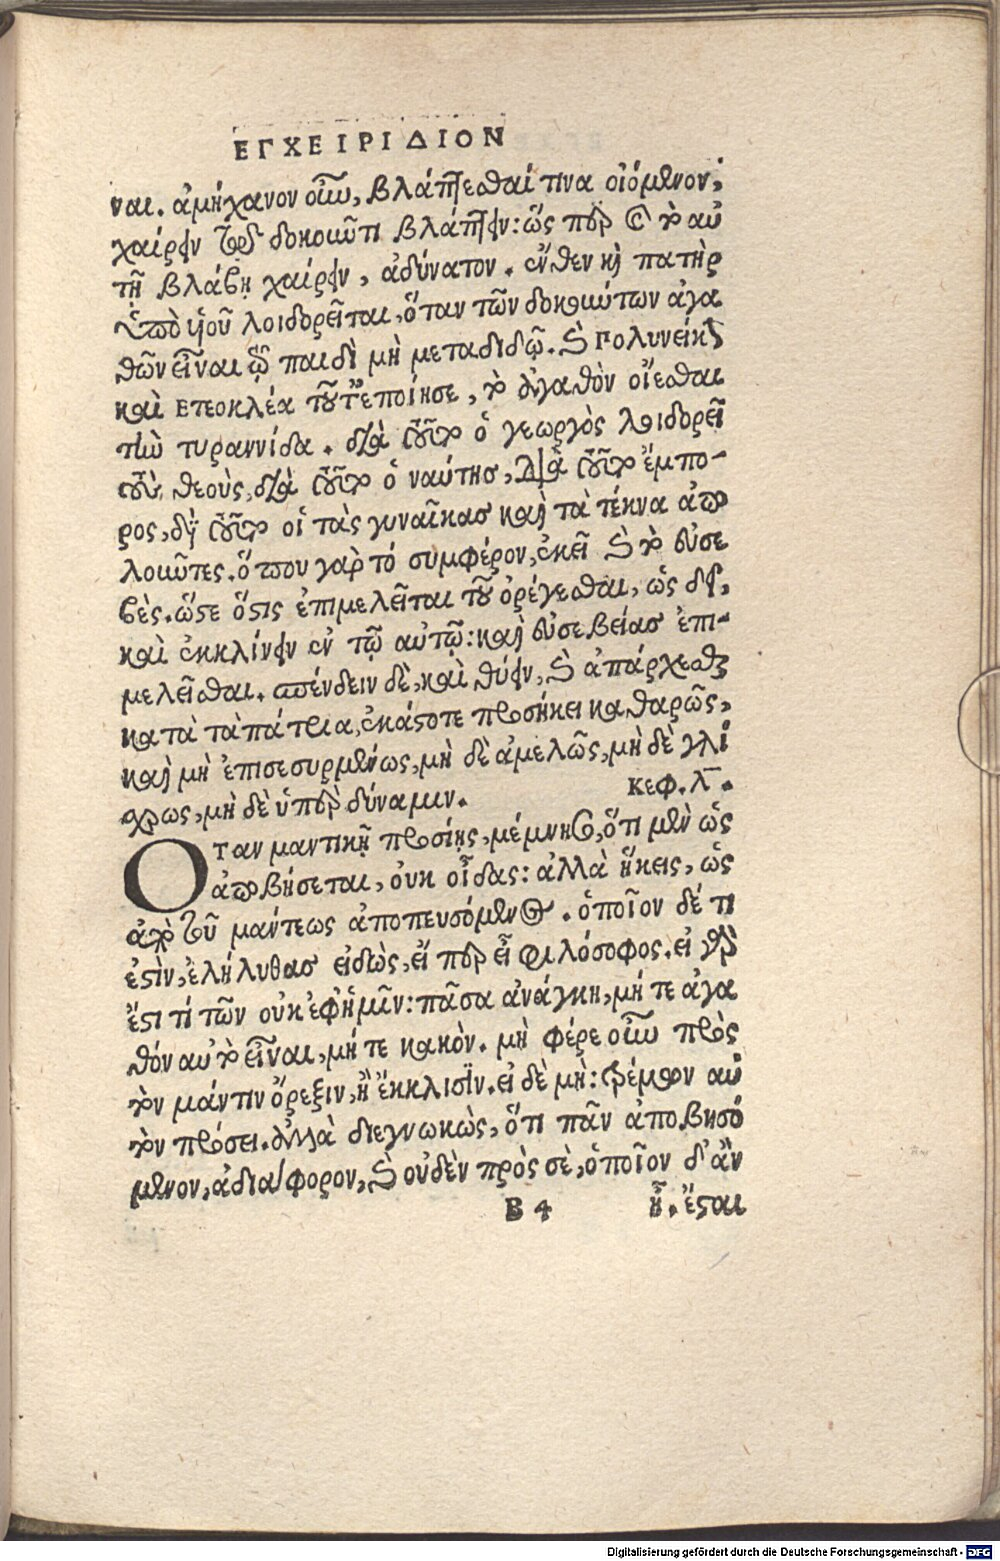 ΕΓΧΕΙΡΙΔΙΟΝ
ναι. ἀμήχανον οὖν, βλάπτεσθαί τινα οἰόμενον,
χαίρειν τῷ δοκοῦντι βλάπτειν: ὥς περ καὶ τὸ αὐ
τῇ βλάβῃ χαίρειν, ἀδύνατον. ἔνθεν καὶ πατὴρ
ὑπὸ ὑιοῦ λοιδορεῖται, ὅταν τῶν δοκούντων ἀγα
θῶν εἶναι τῷ παιδὶ μὴ μεταδιδῷ. καὶ Πολυνείκη
καὶ Ετεοκλέα τοῦτ' ἐποίησε, τὸ ἀγαθὸν οἴεσθαι
τὴν τυραννίδα. διὰ τοῦτο ὁ γεωργὸς λοιδορεῖ
τοὺς θεοὺς, διὰ τοῦτο ὁ ναύτης, διὰ τοῦτο ἔμπο-
ρος, διὰ τοῦτο οἱ τὰς γυναῖκας καὶ τὰ τέκνα ἀπο
λοῦντες. ὅπου γὰρ τό συμφέρον, ἐκεῖ καὶ τὸ εὐσε
βὲς. ὥστε ὅστις ἐπιμελεῖται τοῦ ὀρέγεσθαι, ὡς δεῖ,
καὶ ἐκκλίνειν ἐν τῷ αὐτῷ: καὶ εὐσεβείας ἐπι-
μελεῖσθαι. σπένδειν δὲ, καὶ θύειν, καὶ ἀπάρχεσθαι
κατὰ τὰ πάτρια, ἑκάστοτε προσήκει καθαρῶς,
καὶ μὴ ἐπισεσυρμένως, μὴ δὲ ἀμελῶς, μὴ δὲ γλί
χρως, μὴ δὲ ὑπὲρ δύναμιν. Κεφ. λ̅.
Οταν μαντικῇ προσίῃς, μέμνησο, ὅτι μὲν ὡς
ἀποβήσεται, ὀυκ οἶδας: ἀλλὰ ἥκεις, ὡς
παρὰ τοῦ μάντεως ἀποπευσόμενος. ὁποῖον δέ τι
ἐστὶν, ἐλήλυθας εἰδὼς, εἴ περ εἶ φιλόσοφος. εἰ γὰρ
ἔστι τί τῶν οὐκ ἐφ' ἡμῖν: πᾶσα ἀνάγκη, μή τε ἀγα
θόν αὐτὸ εἶναι, μή τε κακὸν. μὴ φέρε οὖν πρὸς
τὸν μάντιν ὄρεξιν, ἢ ἔκκλισιν. εἰ δὲ μὴ: τρέμων αὐ
τὸν πρόσει. ἀλλὰ διεγνωκὼς, ὅτι πᾶν ἀποβησό
μενον, ἀδιάφορον, καὶ οὐδὲν πρὸς σὲ, ὁποῖον δ' ἂν
B 4 ᾖ. ἔσται
Digitalisierung gefördert durch die Deutsche Forschungsgemeinschaft - DFG